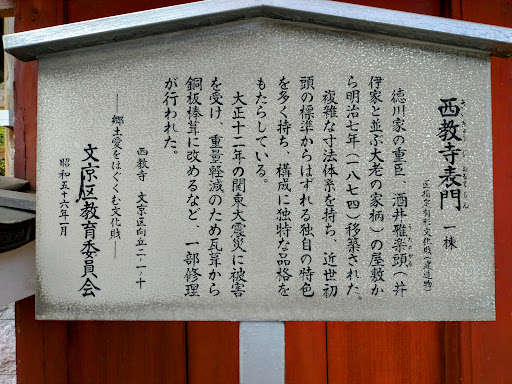 西教寺表門 一棟
区指定有形文化財(建造物)
徳川家の重臣 酒井雅楽頭(井
伊家と並ぶ大老の家柄)の屋敷か
ら明治七年(一八七四)移築された。
複雑な寸法体系を持ち、近世初
頭の標準からはずれる独自の特色
を多く持ち、構成に独特な品格を
もたらしている。
大正十二年の関東大震災に被害
を受け、重量軽減のため瓦葺から
銅板棒葺に改めるなど、一部修理
が行われた。
西教寺 文京区向丘二・一・十
――郷土愛をはぐくむ文化財――
文京区教育委員会
昭和五十六年一月